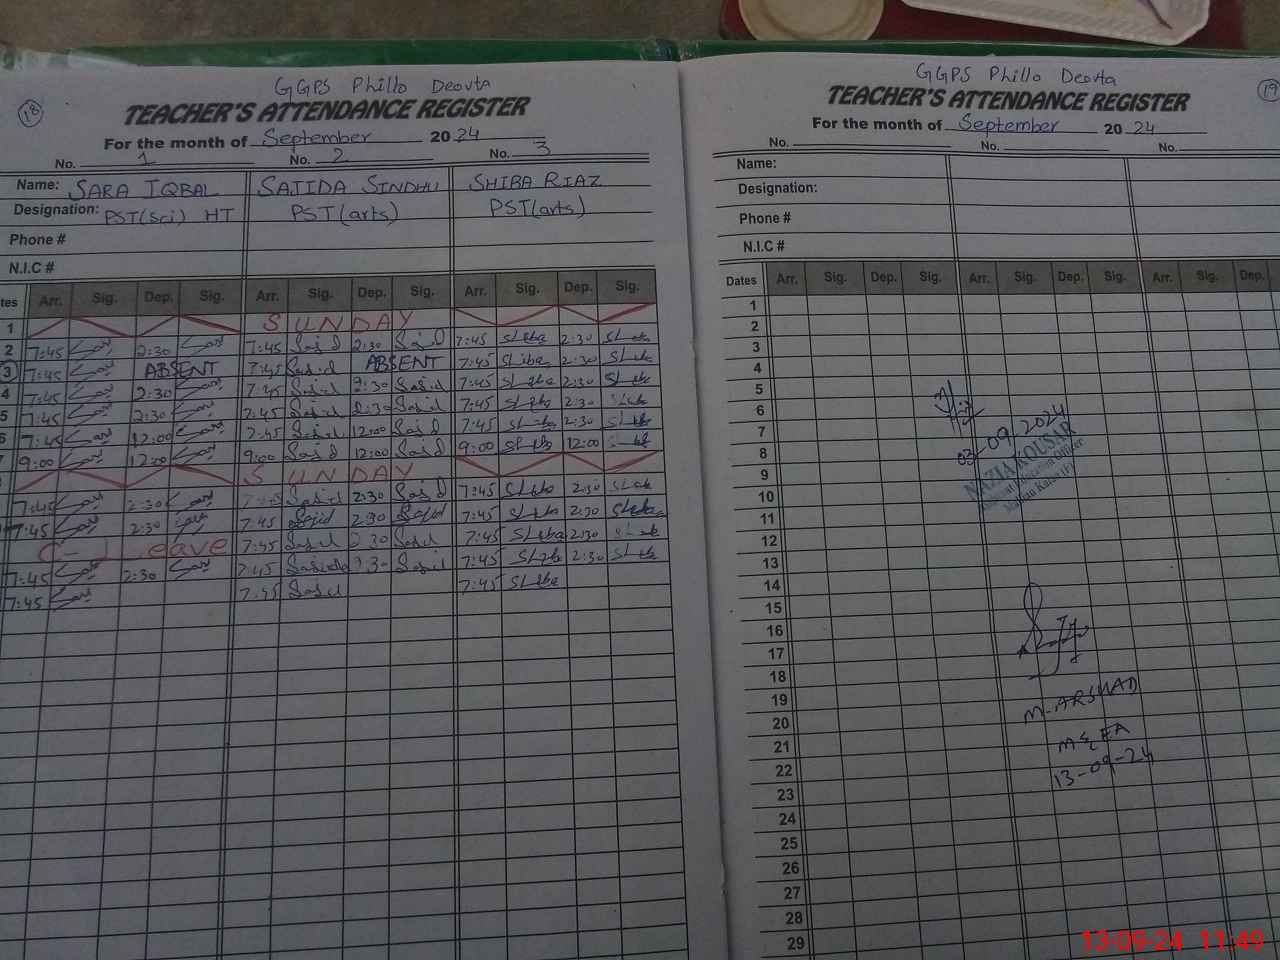 GGPS Phillo Deovta
18
TEACHER'S ATTENDANCE REGISTER
For the month of September 2024
No. 1 No. 2 No. 3
Name: SARA IQBAL SAJIDA SINDHU SHIBA RIAZ
Designation: PST(sci) HT PST(arts) PST(arts)
Phone #
N.I.C #
tes Arr. Sig. Dep. Sig. Arr. Sig. Dep. Sig. Arr. Sig. Dep. Sig.
1 SUNDAY
2 7:45 2:30 7:45 Sajid 2:30 Sajid 7:45 Shiba 2:30 Shiba
3 7:45 ABSENT 7:45 Sajid ABSENT 7:45 Shiba 2:30 Shiba
4 7:45 2:30 7:45 Sajid 2:30 Sajid 7:45 Shiba 2:30 Shiba
5 7:45 2:30 7:45 Sajid 2:30 Sajid 7:45 Shiba 2:30 Shiba
6 7:45 12:00 7:45 Sajid 12:00 Sajid 7:45 Shiba 2:30 Shiba
7 9:00 12:00 9:00 Sajid 12:00 Sajid 9:00 Shiba 12:00 Shiba
SUNDAY
7:45 2:30 7:45 Sajid 2:30 Sajid 7:45 Shiba 2:30 Shiba
7:45 2:30 7:45 Sajid 2:30 Sajid 7:45 Shiba 2:30 Shiba
C-Leave 7:45 Sajid 2:30 Sajid 7:45 Shiba 2:30 Shiba
7:45 2:30 7:45 Sajida 2:30 Sajid 7:45 Shiba 2:30 Shiba
7:45 7:45 Sajid 7:45 Shiba
GGPS Phillo Deovta
19
TEACHER'S ATTENDANCE REGISTER
For the month of September 2024
No. No. No.
Name:
Designation:
Phone #
N.I.C #
Dates Arr. Sig. Dep. Sig. Arr. Sig. Dep. Sig. Arr. Sig. Dep.
1
2
3
4
5
6
7
8
9
10
11
12
13
14
15
16
17
18
19
20
21
22
23
24
25
26
27
28
29
03-09-2024
NAZIA KOUSAR
M-ARSHAD
MEA
13-09-24
13-09-24 11:49